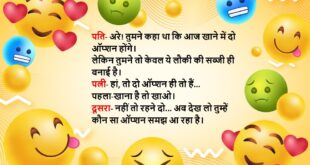 पति- अरे! तुमने कहा था कि आज खाने में दो
ऑप्शन होंगे।
लेकिन तुमने तो केवल ये लौकी की सब्जी ही
बनाई है।
पत्नी- हां, तो दो ऑप्शन ही तो हैं...
पहला-खाना है तो खाओ।
दूसरा- नहीं तो रहने दो... अब देख लो तुम्हें
कौन सा ऑप्शन समझ आ रहा है।